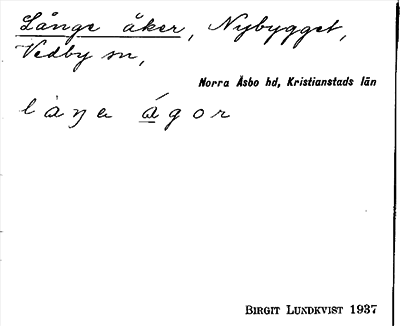 Långe åker, Nybygget,
Vedby sn,
Norra Åsbo hd, Kristianstads län
làŋa ágor
BIRGIT LUNDKVIST 1937